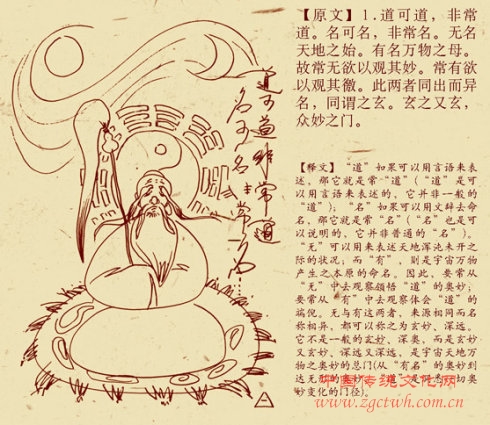 道可道非常道
名可名非常名
【原文】1.道可道，非常
道。名可名，非常名。无名
天地之始。有名万物之母。
故常无欲以观其妙。常有欲
以观其徼。此两者同出而异
名，同谓之玄。玄之又玄，
众妙之门。
【释文】“道”如果可以用言语来表
述，那它就是常“道”（“道”是可
以用言语来表述的，它并非一般的
“道”）；“名”如果可以用文辞去命
名，那它就是常“名”（“名”也是可
以说明的，它并非普通的“名”）。
“无”可以用来表述天地浑沌未开之
际的状况；而“有”，则是宇宙万物
产生之本原的命名。因此，要常从
“无”中去观察领悟“道”的奥妙；
要常从“有”中去观察体会“道”的
端倪。无与有这两者，来源相同而名
称相异，都可以称之为玄妙、深远。
它不是一般的玄妙、深奥，而是玄妙
又玄妙、深远又深远，是宇宙天地万
物之奥妙的总门（从“有名”的奥妙到
达无形的奥妙，“道”是洞悉一切奥
妙变化的门径）。
中国传统文化网
www.zgctwh.com.cn